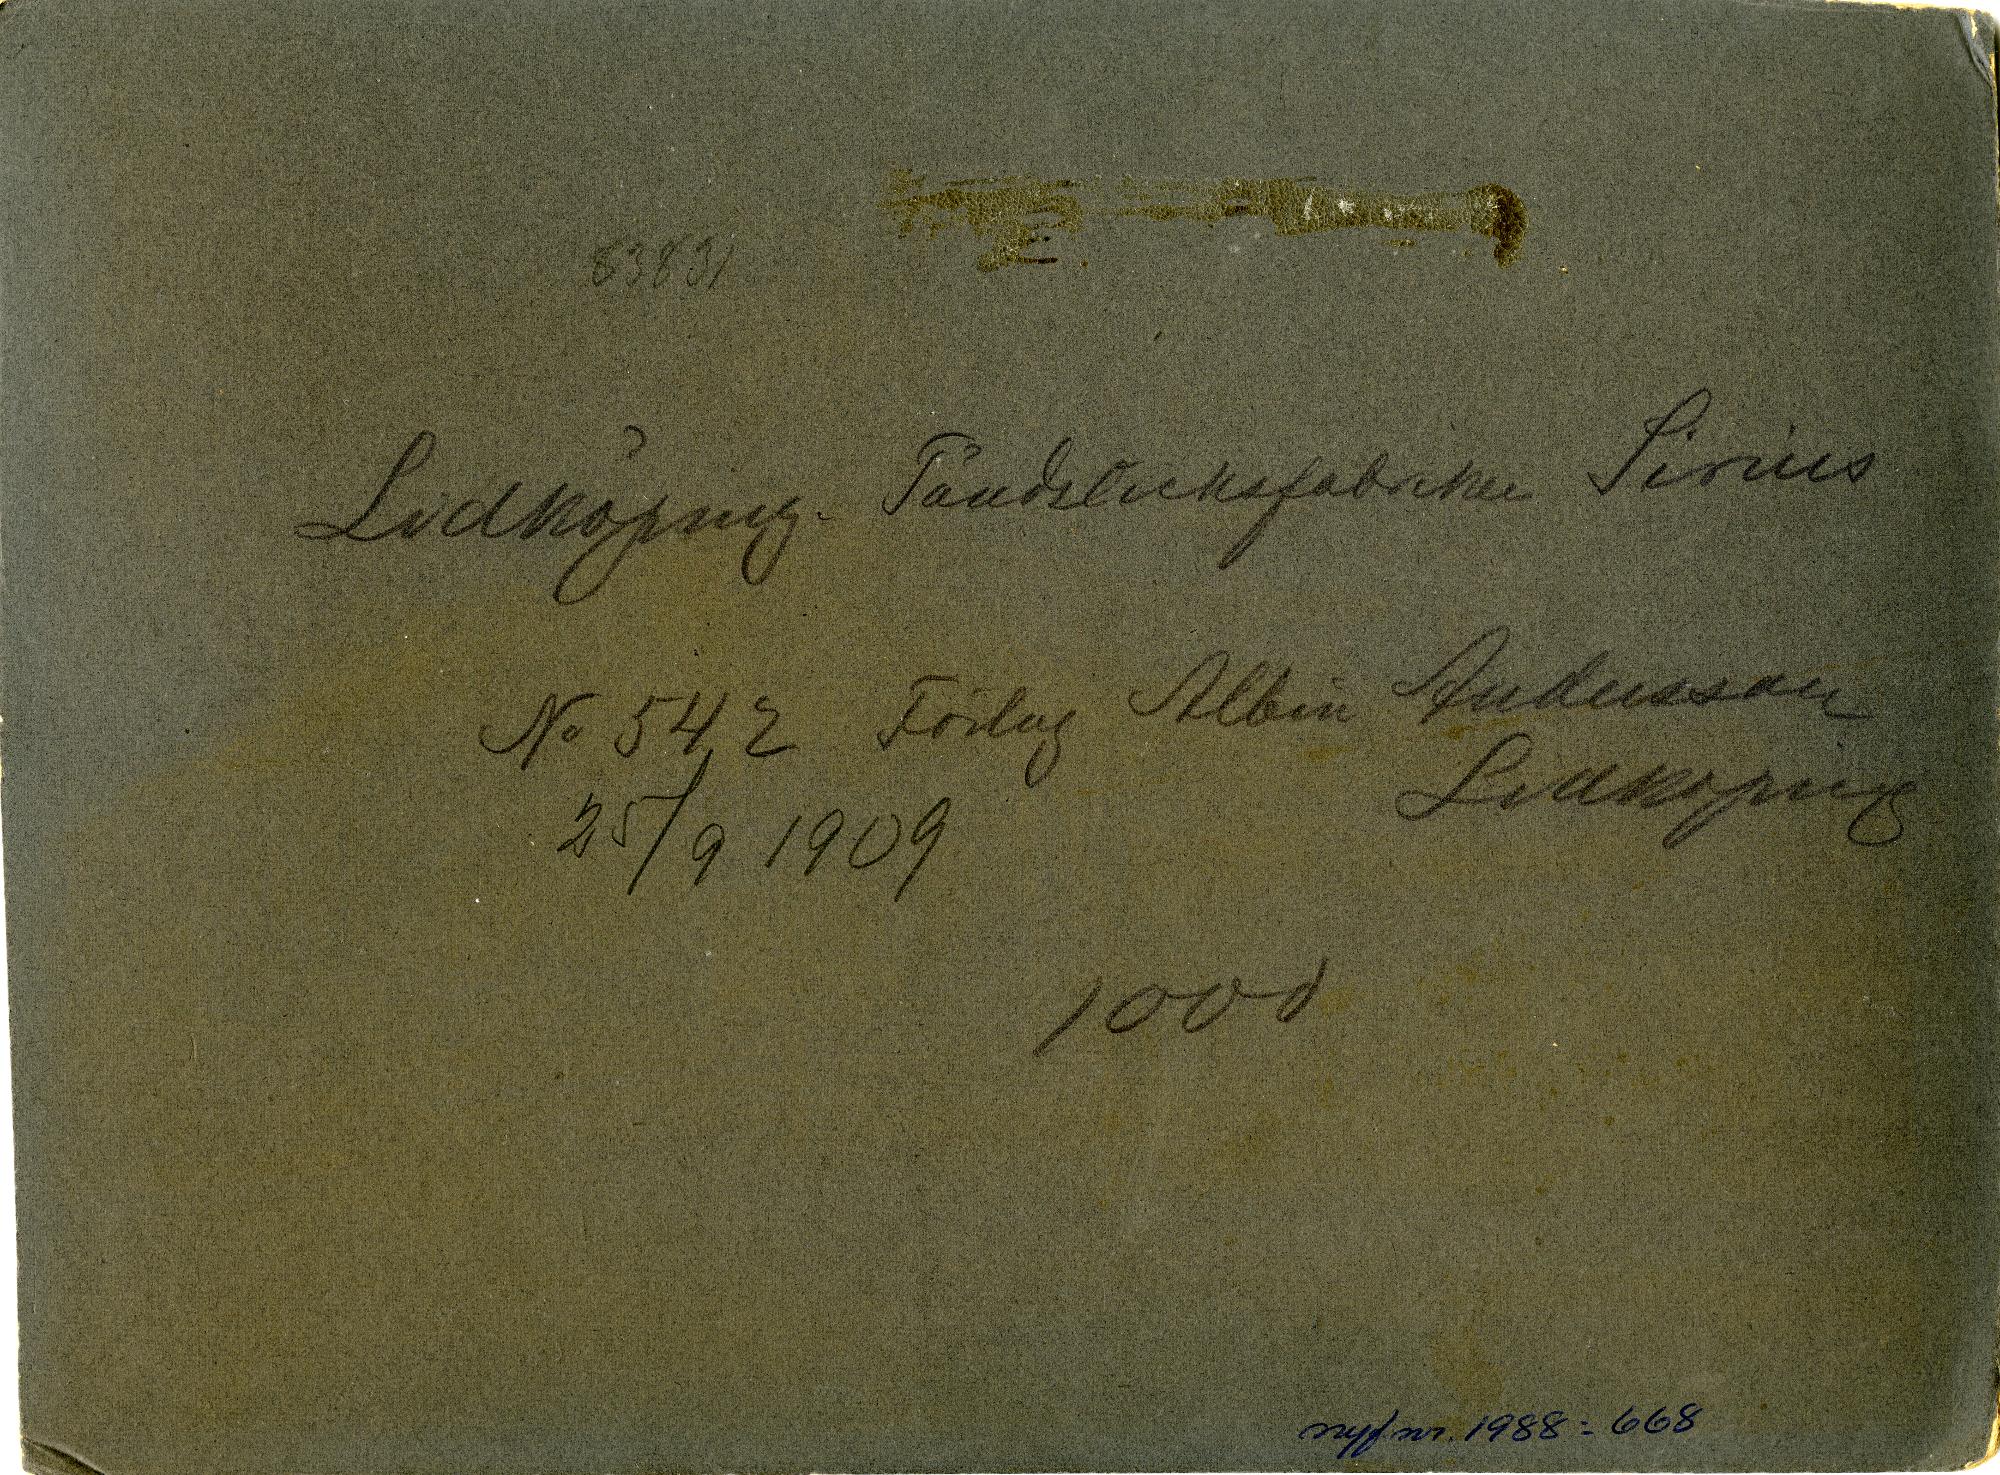 83831
Lidköping. Tändsticksfabriken Sirius
No 542 Förlag Albin Andersson
Lidköping
25/9 1909
1000
nyf nr. 1988:668